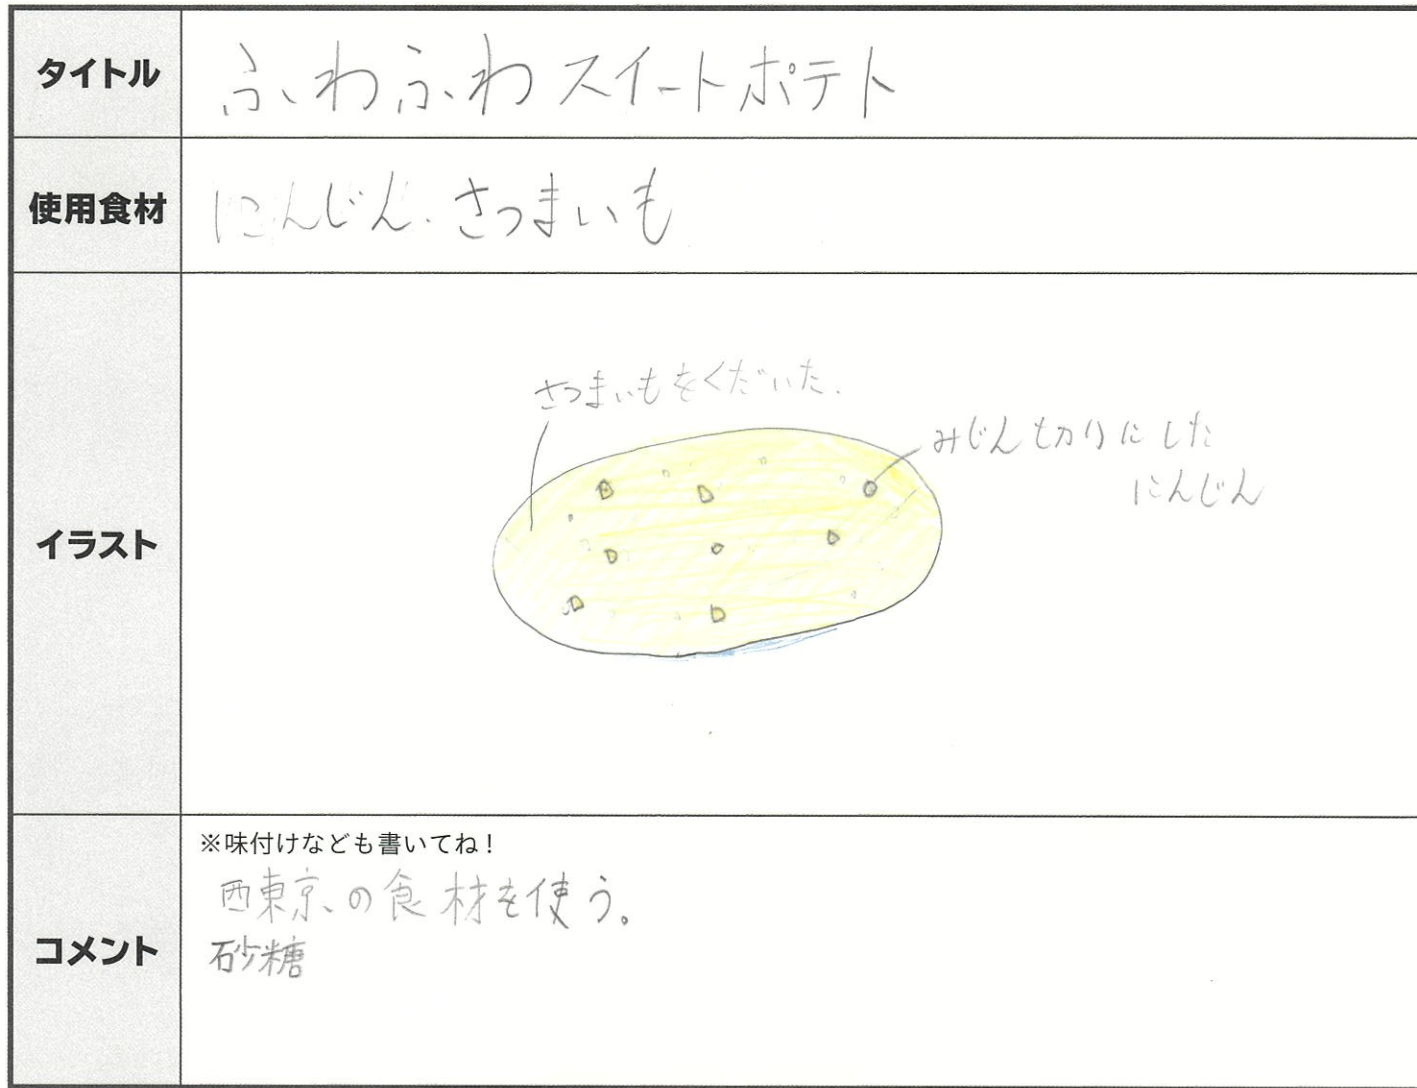 タイトル
ふわふわスイートポテト
使用食材
にんじん.さつまいも
イラスト
さつまいもをくだいた.
みじん切りにした
にんじん
コメント
※味付けなども書いてね!
西東京の食材を使う。
砂糖